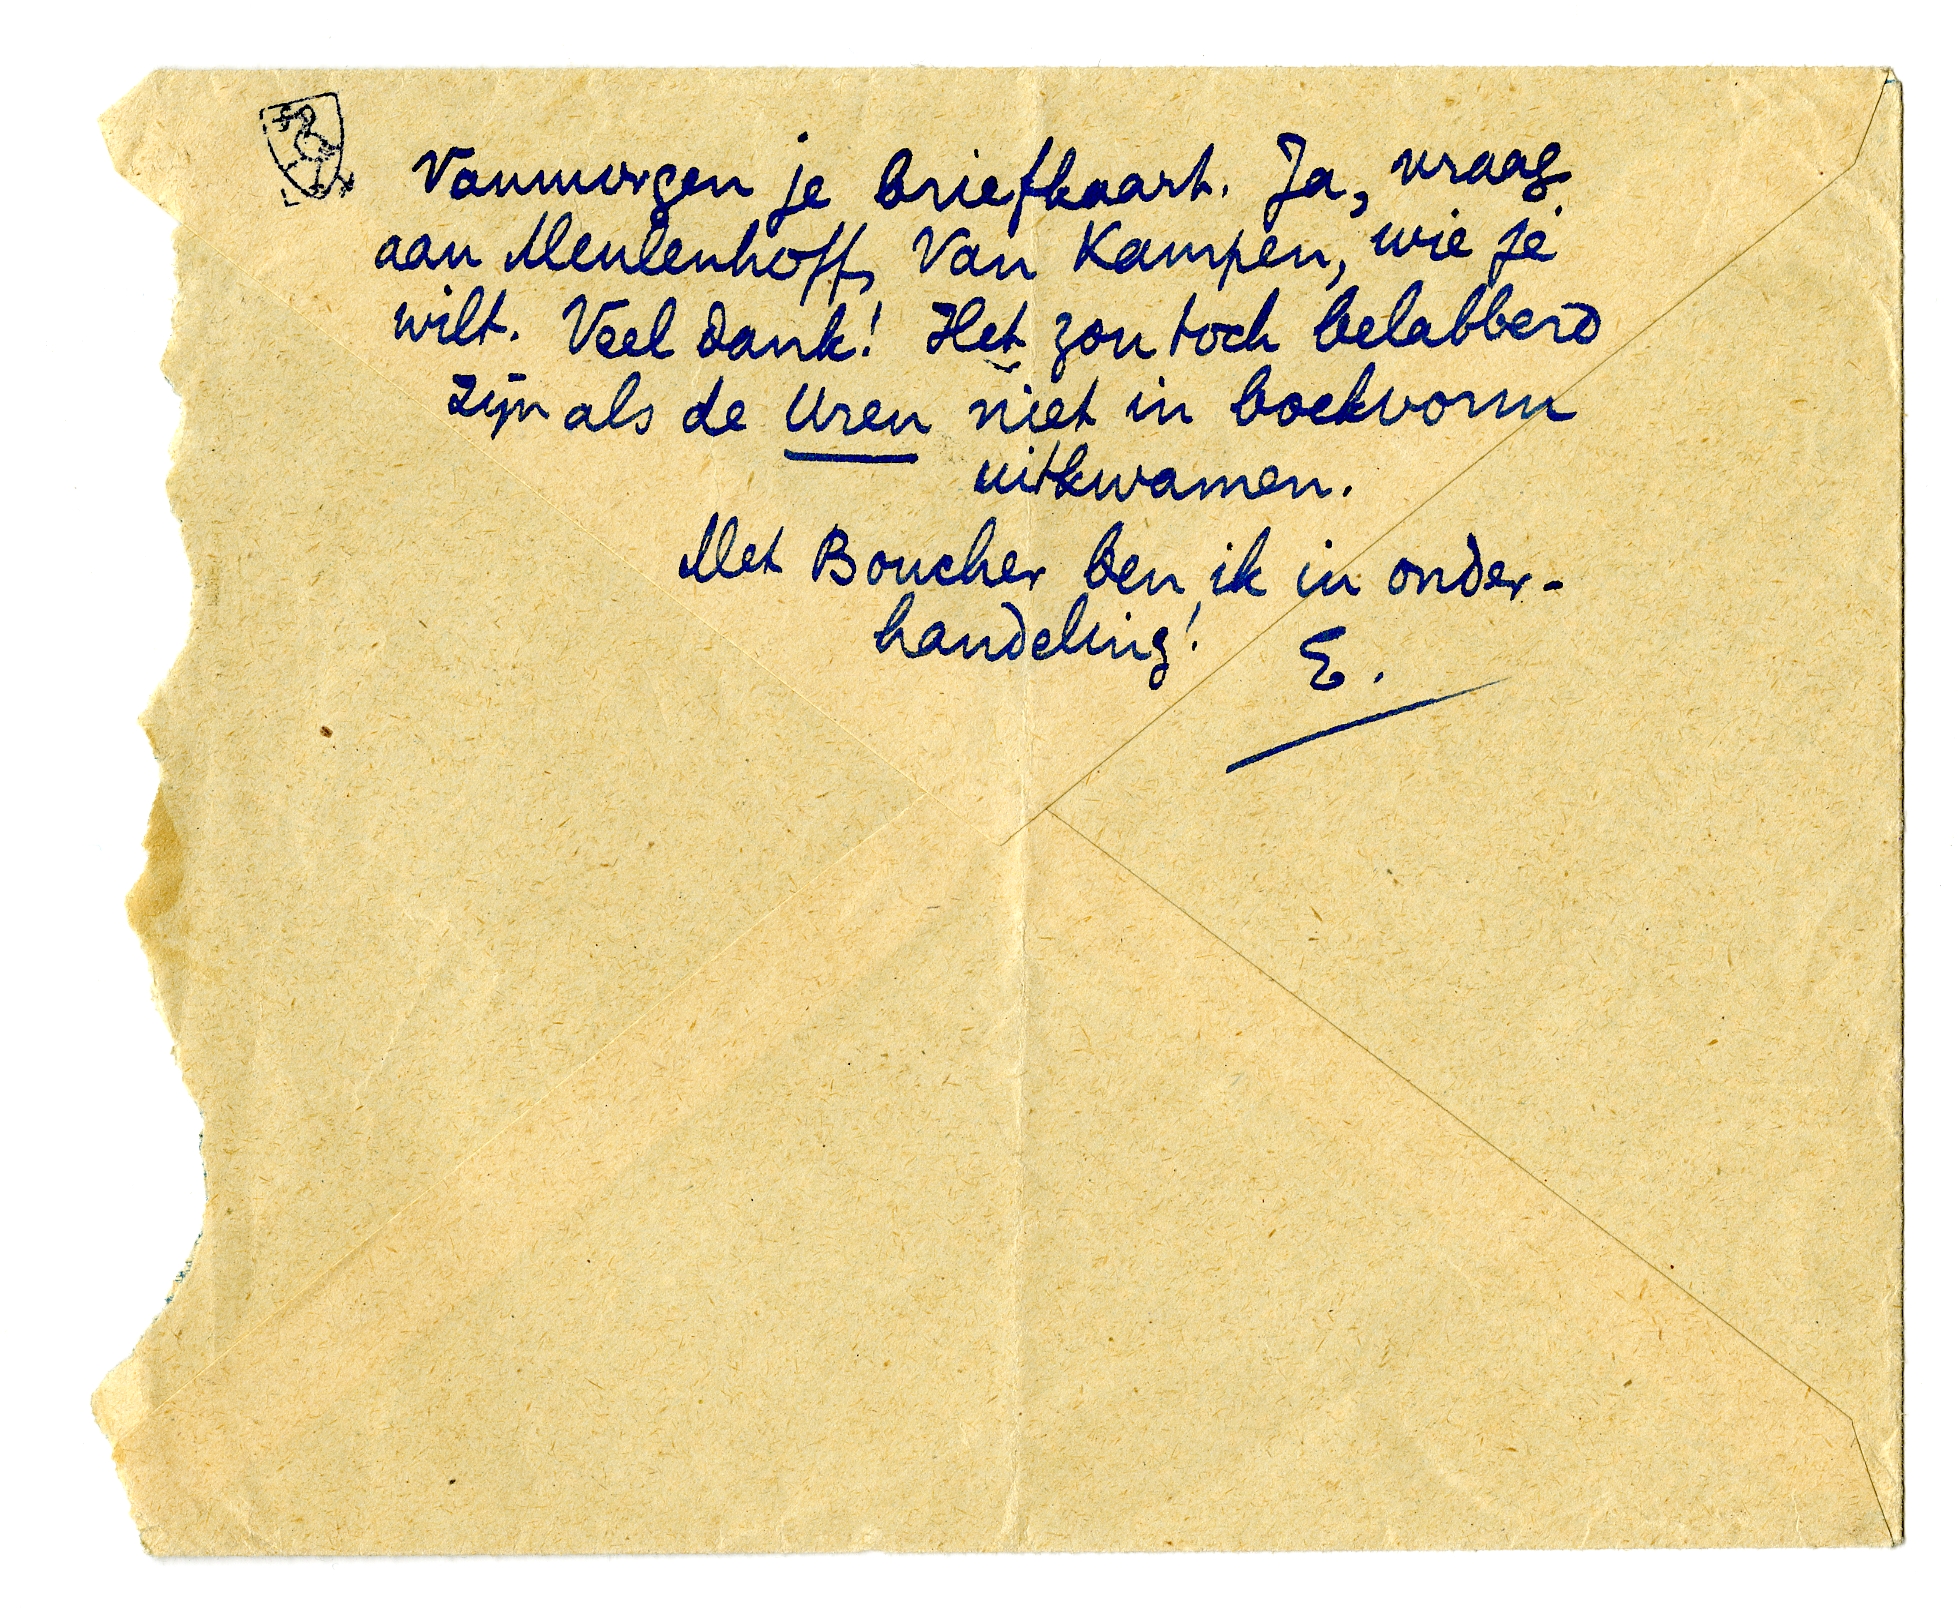 Vanmorgen je briefkaart. Ja, vraag
aan Meulenhoff, Van Kampen, wie je
wilt. Veel dank! Het zou toch belabberd
zijn als de Uren niet in boekvorm
uitkwamen.
Met Boucher ben ik in onder-
handeling!
E.